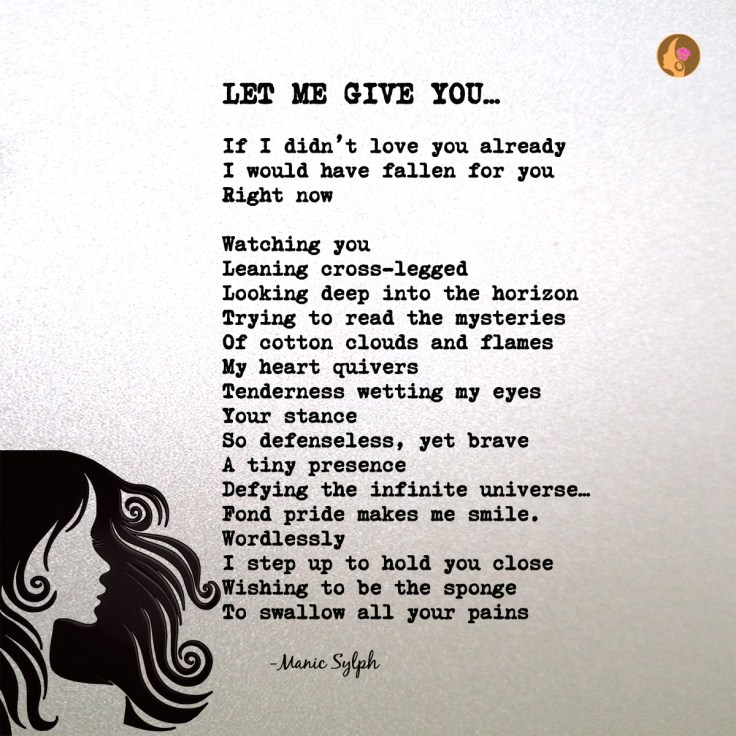 LET ME GIVE YOU…
If I didn't love you already
I would have fallen for you
Right now
Watching you
Leaning cross-legged
Looking deep into the horizon
Trying to read the mysteries
Of cotton clouds and flames
My heart quivers
Tenderness wetting my eyes
Your stance
So defenseless, yet brave
A tiny presence
Defying the infinite universe…
Fond pride makes me smile.
Wordlessly
I step up to hold you close
Wishing to be the sponge
To swallow all your pains
-Manic Sylph